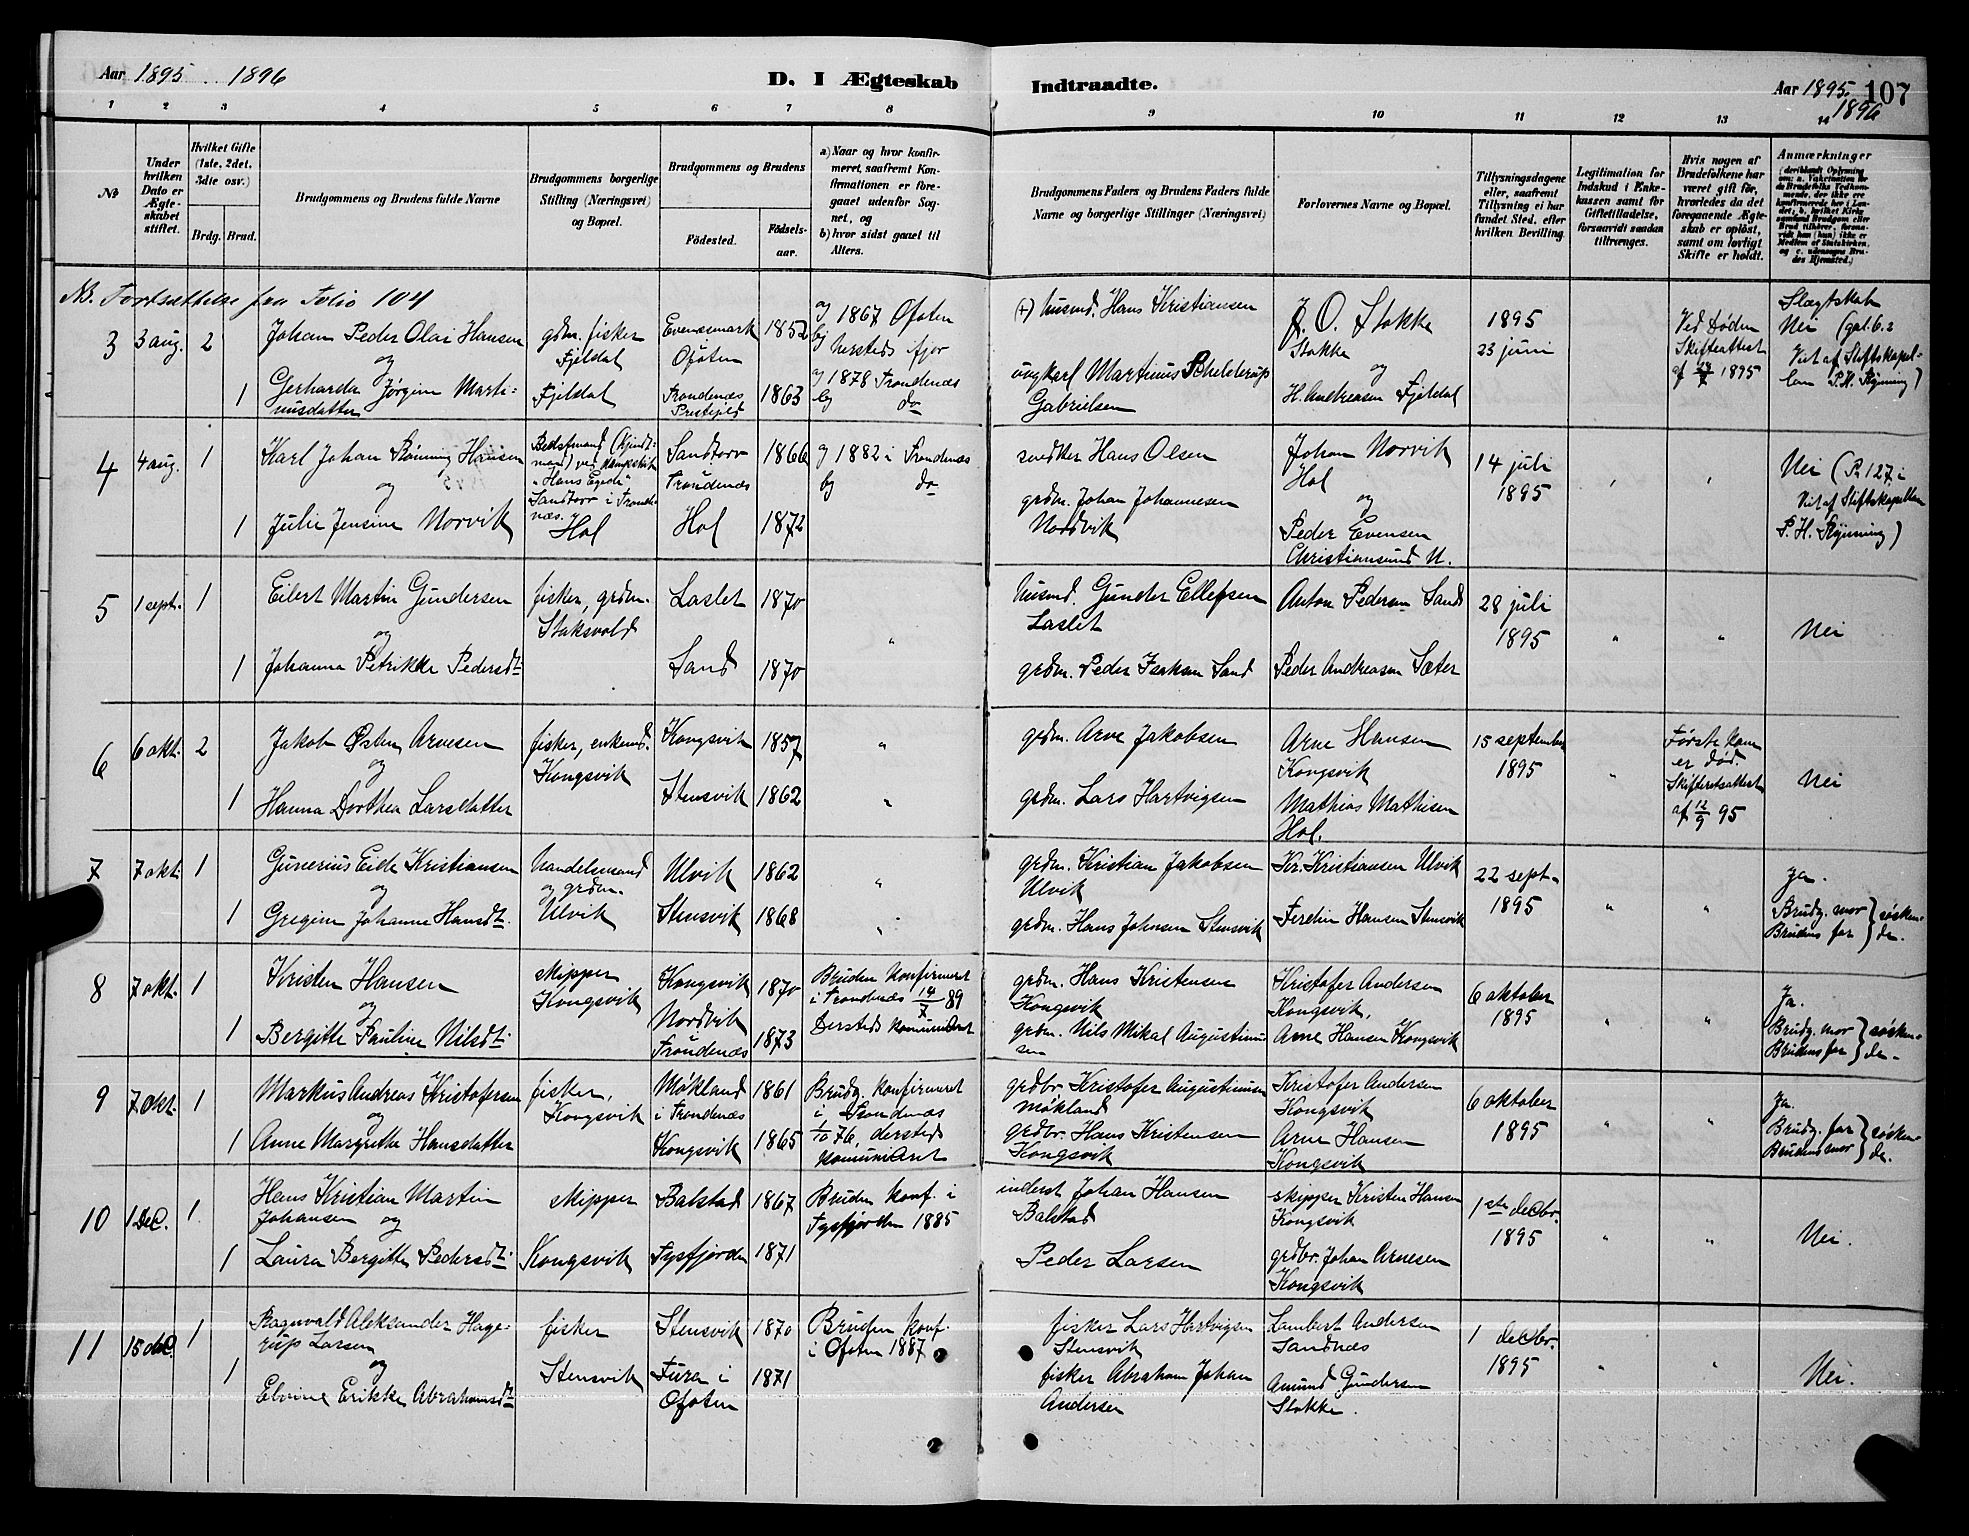 Aar 1895 . 1896
D. I Ægteskab Indtraadte.
Aar 1895. 107
1896
1 2 3 4 5 6 7 8 9 10 11 12 13 14
No
Under hvilken Dato er Ægteskabet stiftet.
Hvilket Gifte (1ste, 2det, 3die osv.)
Brdg. Brud.
Brudgommens og Brudens fulde Navne
Brudgommens borgerlige Stilling (Næringsvei) og Bopæl.
Brudgommens og Brudens
Födested.
Födselsaar.
a) Naar og hvor konfirmeret, saafremt Konfirmationen er foregaaet udenfor Sognet, og
b) hvor sidst gaaet til Alters.
Brudgommens Faders og Brudens Faders fulde Navne og borgerlige Stillinger (Næringsvei)
Forlovernes Navne og Bopæl.
Tillysningsdagene eller, saafremt Tillysning ei har fundet Sted, efter hvilken Bevilling.
Legitimation for Indskud i Enkekassen samt for Giftetilladelse, forsaavidt saadan tiltrænges.
Hvis nogen af Brudefolkene har været gift för, hvorledes da det foregaaende Ægteskab er oplöst, samt om lovligt Skifte er holdt.
Anmærkninger
NB. Fortsættelse fra Folio 104
3 3 aug. 2 Johan Peder Olai Hansen gdm. fisker Fjeldal Evenesmark Ofoten 1852 a) 1867 Ofoten b) hersteds fjor
og
1 Gerharda Jørgine Martinusdatter Fjeldal Trondenæs Prestegjeld 1863 a) 1878 Trondenæs b) do
(+) husmd. Hans Kristiansen
ungkarl Martinus Schelderup Gabrielsen
J. O. Stokke Stokke
og
H. Andreasen Fjeldal
1895 23 juni
Ved Døden Skifteattest af 29/7 1895
Slægtskab Nei
Vid. af Stiftskapellan P. H. Rynning)
4 4 aug. 1 Karl Johan Rønning Hansen
"Hans Egede" Sandtorv i Trondenæs.
Sandtorv Trondenæs 1866 a) 1882 i Trondenæs b) do
og
1 Julie Jensine Norvik Hol Hol 1872
Hans Olsen
grdm. Johan Johannesen Nordvik
Johan Norvik Hol
og
Peder Evensen Christiansund N.
14 juli 1895
Nei (P. 127 i
Vid af Stiftskapellan P. H. Rynning)
5 1 sept. 1 Eilert Martin Gundersen fisker, grdm. Staksvold Laslet 1870
og
1 Johanna Petrikke Pedersdt. Sand 1870
husmd. Gunder Ellefsen Laslet
grdm. Peder Isaksen Sand
Anton Pedersen Sand
Peder Andreasen Sæter
28 juli 1895
Nei
6 6 okt. 2 Jakob Østen Arnesen fisker, enkemd. Kongsvik Kongsvik 1857
og
1 Hanna Dorthea Larsdatter Stensvik 1862
grdm. Arne Jakobsen
grdm. Lars Hartvigsen
Arne Hansen Kongsvik
Mathias Mathisen Hol.
15 september 1895
Første kone er død. Skifteretsattest af 12/9 95
Nei
7 7 okt. 1 Gunerius Eide Kristiansen Handelsmand og grdm. Ulvik Ulvik 1862
og
1 Gregine Johanne Hansdt. Stensvik 1868
grdm. Kristian Jakobsen Ulvik
grdm. Hans Johnsen Stensvik
Kr. Kristiansen Ulvik
Ferdin Hansen Stensvik
22 sept. 1895
Ja.
Brudg. mor Brudens far } søskende.
8 7 okt. 1 Kristen Hansen skipper Kongsvik Kongsvik 1870 Bruden konfirmeret i Trondenæs 14/7 89
og
1 Bergitte Pauline Nilsdt. Nordvik Trondenæs 1873 Dersteds kommuniceret
grdm. Hans Kristensen Kongsvik
grdm. Nils Mikal Augustinussen
Kristofer Andersen Kongsvik,
Arne Hansen Kongsvik
6 oktober 1895
Ja.
Brudg. mor Brudens far } søskende.
9 7 okt. 1 Markus Andreas Kristofersen fisker, Kongsvik Møkland i Trondenæs 1861 Brudg. konfirmeret i Trondenæs 1/10 76, dersteds kommuniceret
og
1 Anne Margrethe Hansdatter Kongsvik 1865
grdbr. Kristofer Augustinusen Møkland
grdbr. Hans Kristensen Kongsvik
Kristofer Andersen Kongsvik
Arne Hansen Kongsvik
6 oktober 1895
Ja.
Brudg. far Brudens mor } søskende.
10 1 Dec. 1. Hans Kristian Martin Johansen og skipper Balstad 1867 Bruden konf. i Tysfjorden 1885
1 Laura Bergitte Pedersdt. Kongsvik Tysfjorden 1871
inderst Johan Hansen Balstad
Peder Larsen
skipper Kristen Hansen Kongsvik
grdbr. Johan Arnesen Kongsvik
1ste decbr. 1895
Nei.
11 15 dec. 1 Ragnvald Aleksander Hagerup Larsen fisker Stensvik 1870 Bruden konf. i Ofoten 1887
og
1 Elvine Erikke Abrahamsdt. Stensvik Furen i Ofoten 1871
fisker Lars Hartvigsen Stensvik
fisker Abraham Johan Andersen
Lambert Andersen Sandnæs
Amund Gundersen Stokke.
1 decbr. 1895
Nei.